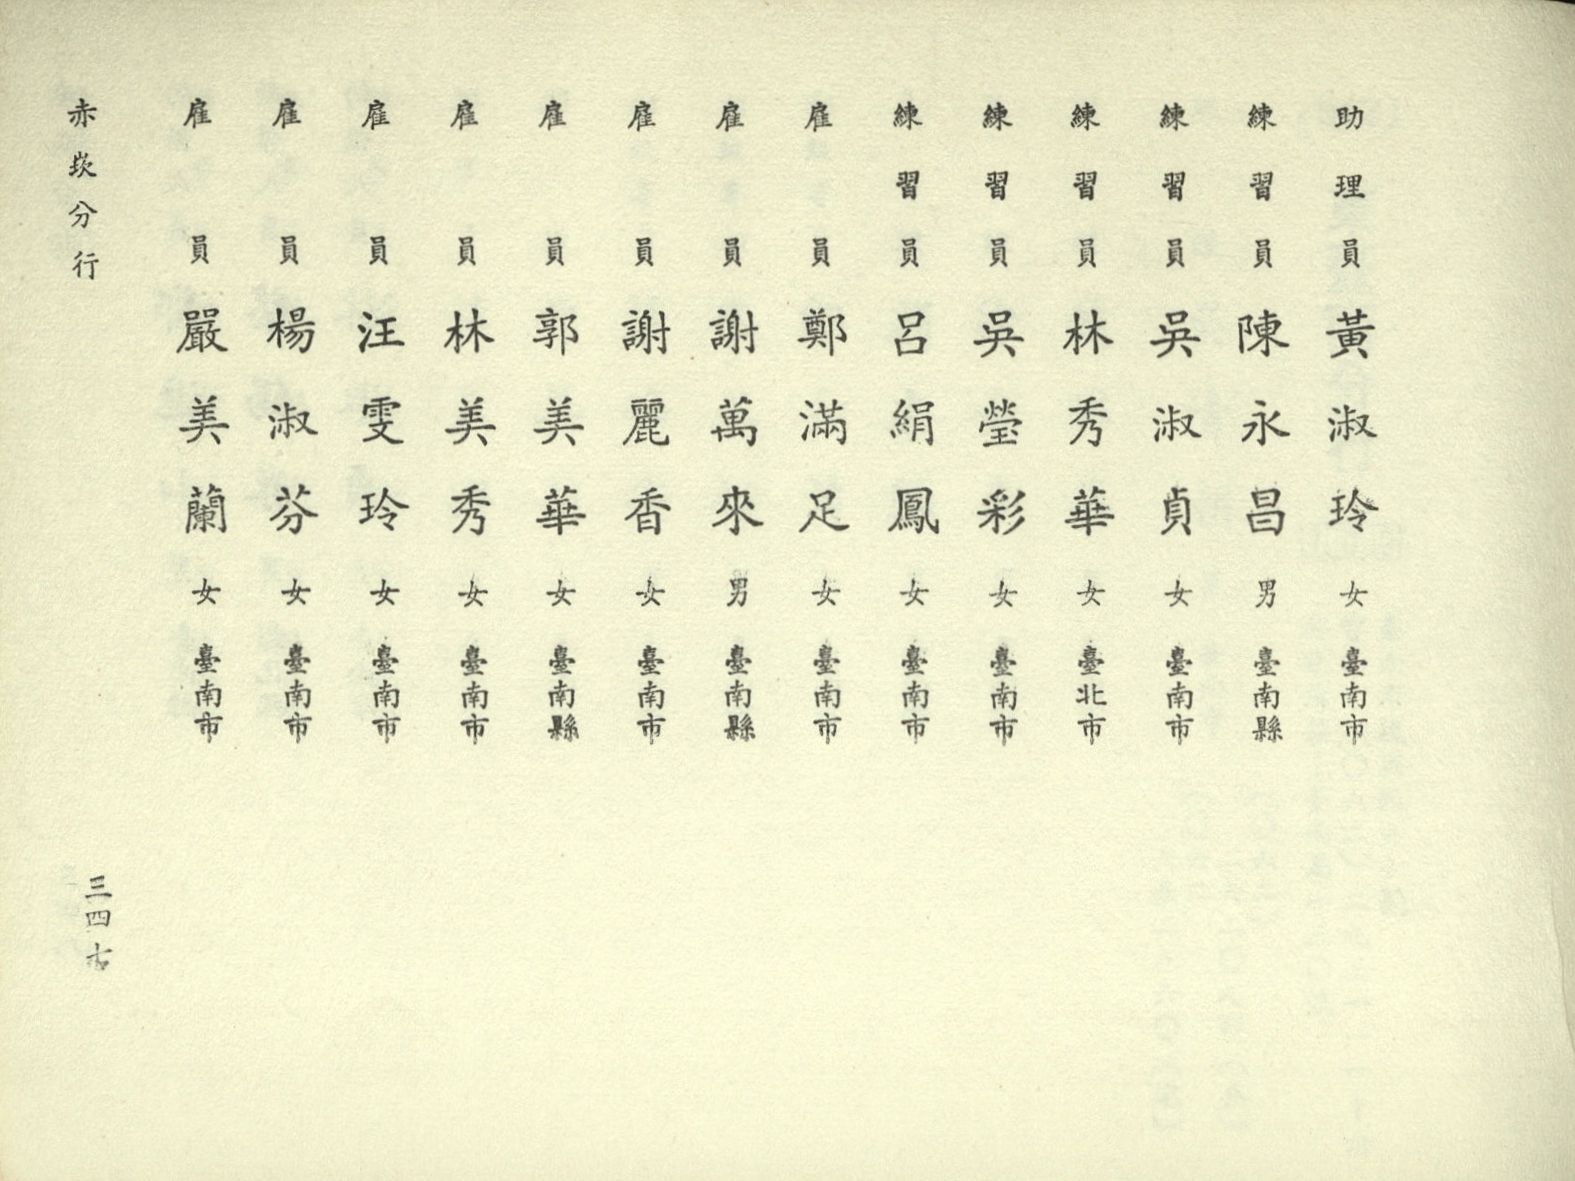 助理員 黃淑玲 女 臺南市
練習員 陳永昌 男 臺南縣
練習員 吳淑貞 女 臺南市
練習員 林秀華 女 臺北市
練習員 吳瑩彩 女 臺南市
練習員 呂絹鳳 女 臺南市
雇員 鄭滿足 女 臺南市
雇員 謝萬來 男 臺南縣
雇員 謝麗香 女 臺南市
雇員 郭美華 女 臺南縣
雇員 林美秀 女 臺南市
雇員 汪雯玲 女 臺南市
雇員 楊淑芬 女 臺南市
雇員 嚴美蘭 女 臺南市
赤崁分行
三四七